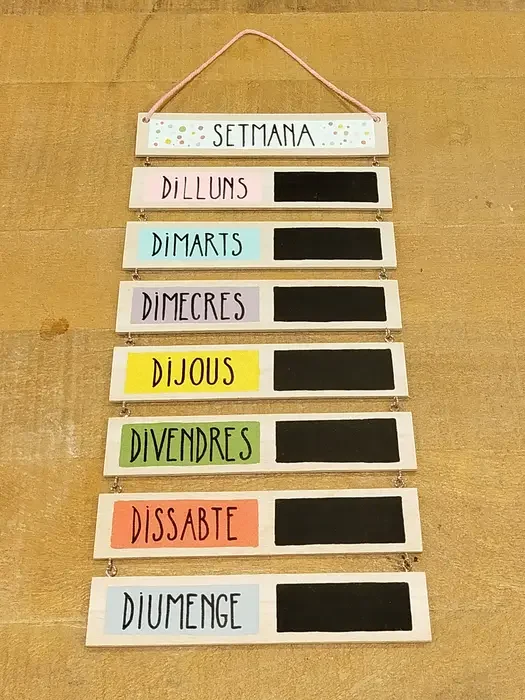 SETMANA
DiLLUNS
DiMARTS
DiMECRES
DiJOUS
DiVENDRES
DiSSABTE
DiUMENGE